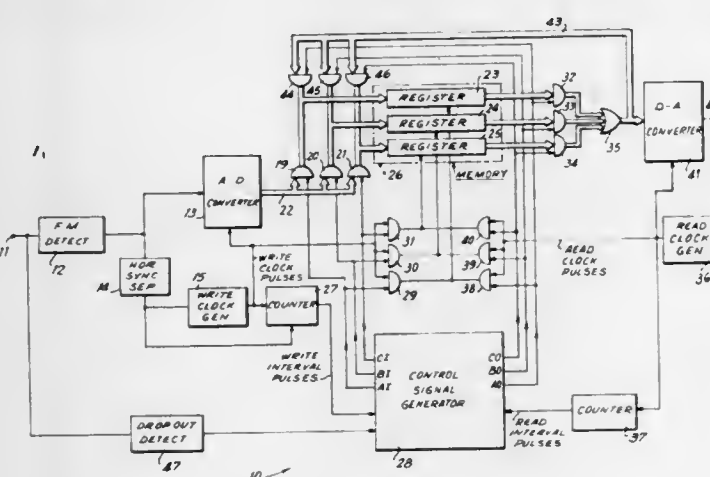 43
46
44
45
REGISTER
23
32
REGISTER
24
33
REGISTER
25
34
35
D-A
CONVERTER
41
26
MEMORY
19
20
21
22
A D
CONVERTER
13
11
FM
DETECT
12
HOR
SYNC
SEP
14
15
WRITE
CLOCK
GEN
WRITE
CLOCK
PULSES
27
COUNTER
31
30
29
40
39
38
READ
CLOCK
PULSES
READ
CLOCK
GEN
36
WRITE
INTERVAL
PULSES
CI
BI
AI
CONTROL
SIGNAL
GENERATOR
CO
BO
AO
28
READ
INTERVAL
PULSES
COUNTER
37
DROPOUT
DETECT
47
10